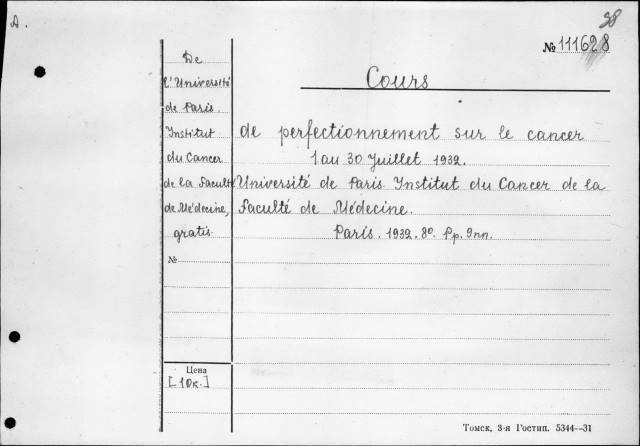 A.
38
№ 111628
De
l'Université
de Paris.
Institut
du Cancer
de la Faculté
de Médecine,
gratis.
№
Cours
de perfectionnement sur le cancer
1 au 30 Juillet 1932.
Université de Paris. Institut du Cancer de la
Faculté de Médecine.
Paris. 1932. 8º. Pp. Inn.
Цена
[10к.]
Томск, 3-я Гостип. 5344—31